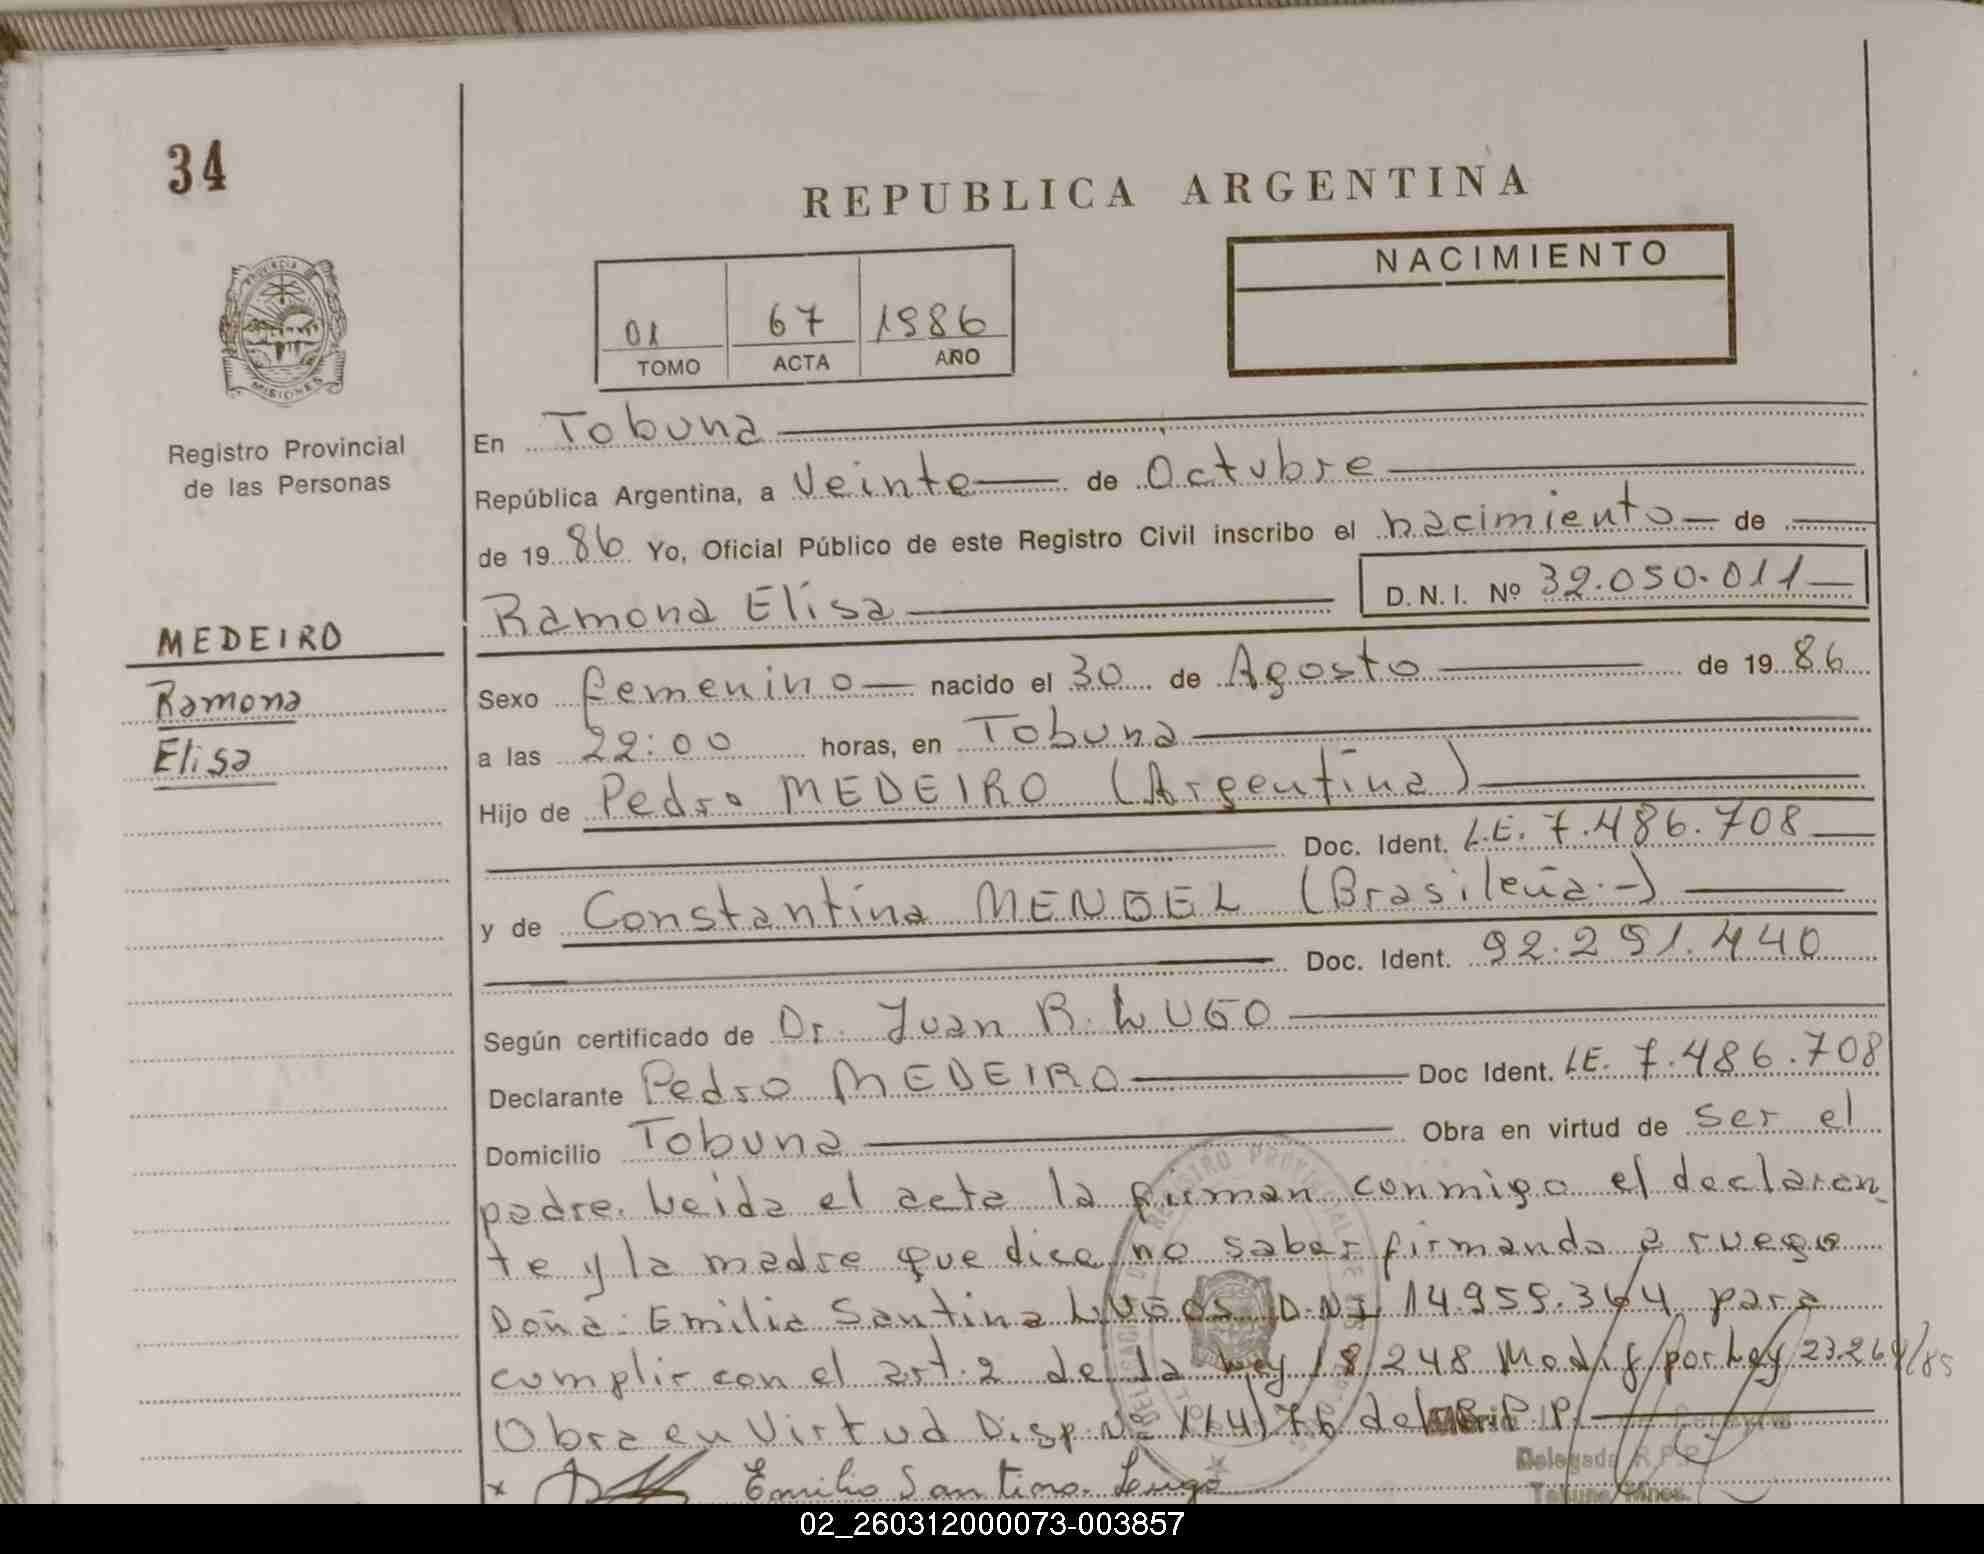 34
REPUBLICA ARGENTINA
NACIMIENTO
01 67 1986
TOMO ACTA AÑO
PROVINCIA DE
MISIONES
Registro Provincial
de las Personas
En Tobuna
República Argentina, a Veinte de Octubre
de 1986 Yo, Oficial Público de este Registro Civil inscribo el nacimiento de
Ramona Elisa D.N.I. Nº 32.050.011
MEDEIRO
Ramona
Elisa
Sexo femenino nacido el 30 de Agosto de 1986
a las 22:00 horas, en Tobuna
Hijo de Pedro MEDEIRO (Argentina)
Doc. Ident. L.E. 7.486.708
y de Constantina MENGEL (Brasileña.-)
Doc. Ident. 92.251.440
Según certificado de Dr. Juan R. LUGO
Declarante Pedro MEDEIRO Doc Ident. LE. 7.486.708
Domicilio Tobuna Obra en virtud de ser el
padre. Leida el acta la firman conmigo el declaran
te y la madre que dice no saber firmando a ruego
Doña: Emilia Santina LUGOS D.N.I 14.959.364 para
cumplir con el art. 2 de la Ley 18.248 Modif por Ley 23.264/85
Obra en Virtud Disp. Nº 164/76 del R.P.P.
x Emilia Santina Lugo
Delegada R.P.P.
Tobuna Mnes.
02_260312000073-003857